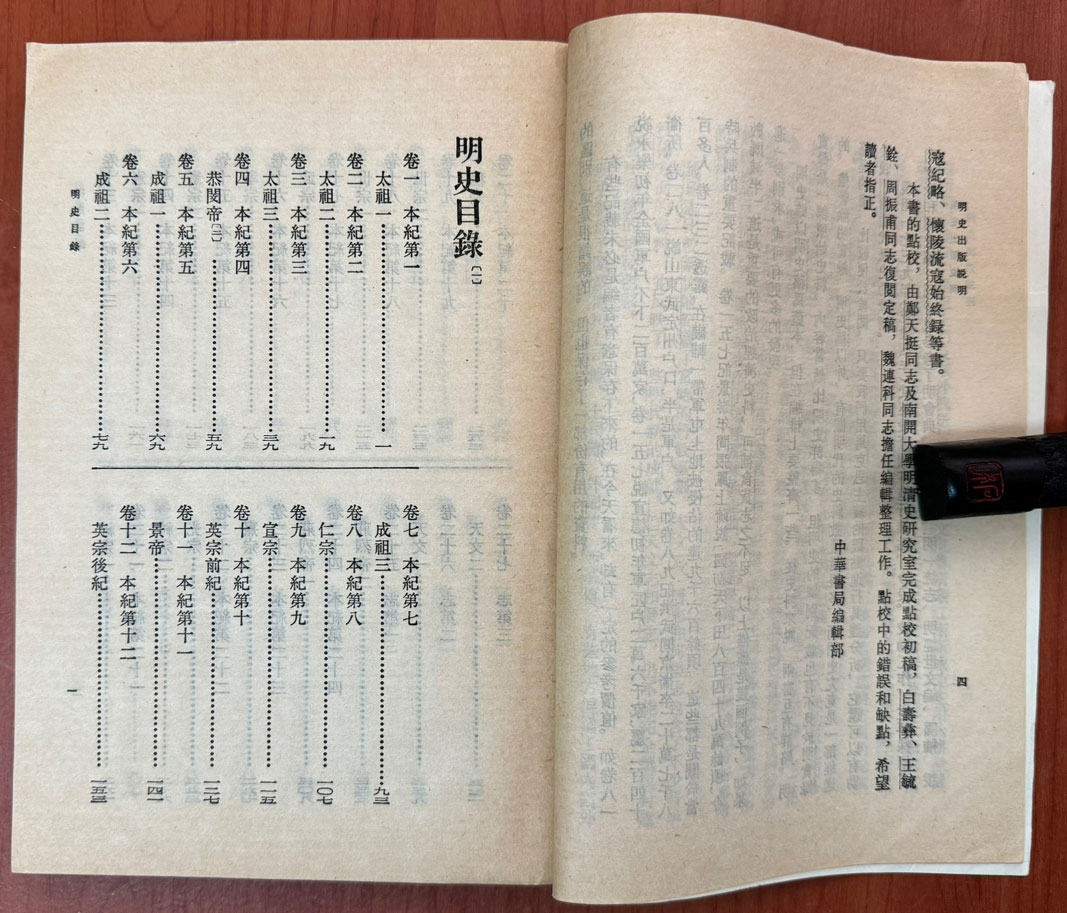 明史出版説明
寇紀略、懷陵流寇始終録等書。
本書的點校，由鄭天挺同志及南開大學明清史研究室完成點校初稿，白壽彝、王毓
銓、周振甫同志復閲定稿，魏連科同志擔任編輯整理工作。點校中的錯誤和缺點，希望
讀者指正。
中華書局編輯部
四
明史目錄〔一〕
卷一　本紀第一
太祖一……一
卷二　本紀第二
太祖二……一九
卷三　本紀第三
太祖三……三九
卷四　本紀第四
恭閔帝〔二〕……五九
卷五　本紀第五
成祖一……六九
卷六　本紀第六
成祖二……七九
卷七　本紀第七
成祖三……九三
卷八　本紀第八
仁宗……一〇七
卷九　本紀第九
宣宗……一一五
卷十　本紀第十
英宗前紀……一二七
卷十一　本紀第十一
景帝……一四一
卷十二　本紀第十二
英宗後紀……一五三
明史目錄
一